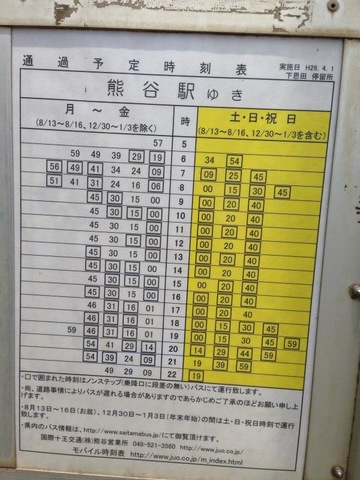 通過予定時刻表
実施日 H26.4.1
下恩田 停留所
熊谷駅ゆき
月～金 時 土・日・祝日
(8/13～8/16、12/30～1/3を除く) (8/13～8/16、12/30～1/3を含む)
57 5
59 49 39 29 19 6 34 54
56 49 41 34 24 09 7 09 25 45
51 41 31 24 16 06 8 00 15 30 45
45 30 15 00 9 00 20 40
45 30 15 00 10 00 20 40
45 30 15 00 11 00 20 40
45 30 15 00 12 00 20 40
45 30 15 00 13 00 20 40
45 30 15 00 14 00 20 40
45 30 15 00 15 00 20 40
45 30 15 00 16 00 20 40
46 31 16 01 17 00 20 40
46 31 16 01 18 00 15 30 45
59 46 31 16 01 19 00 15 30 45 59
54 41 29 14 20 14 29 44 59
54 39 24 09 21 19 39
49 29 09 22 19
・口で囲まれた時刻はノンステップ(乗降口に段差の無い)バスにて運行致します。
・尚、道路事情によりバスが遅れる場合がありますのであらかじめご了承のほどお願い申し上げます。
・8月13日～16日(お盆)、12月30日～1月3日(年末年始)の間は土・日・祝日時刻で運行致します。
・県内のバス情報は、http://www.saitamabus.jp/にて御覧頂けます。
国際十王交通(株)熊谷営業所 048-521-3560 http://www.juo.co.jp/
モバイル時刻表 http://www.juo.co.jp/m_index.html